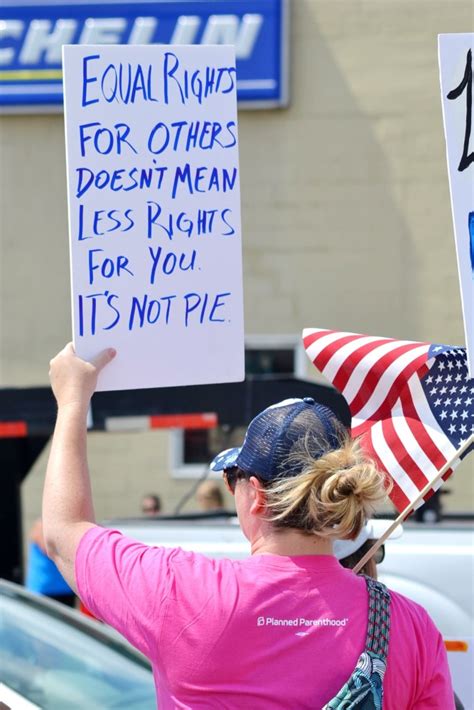 CHELIN
EQUAL RIGHTS
FOR OTHERS
DOESN'T MEAN
LESS RIGHTS
FOR YOU.
IT'S NOT PIE.
Planned Parenthood®